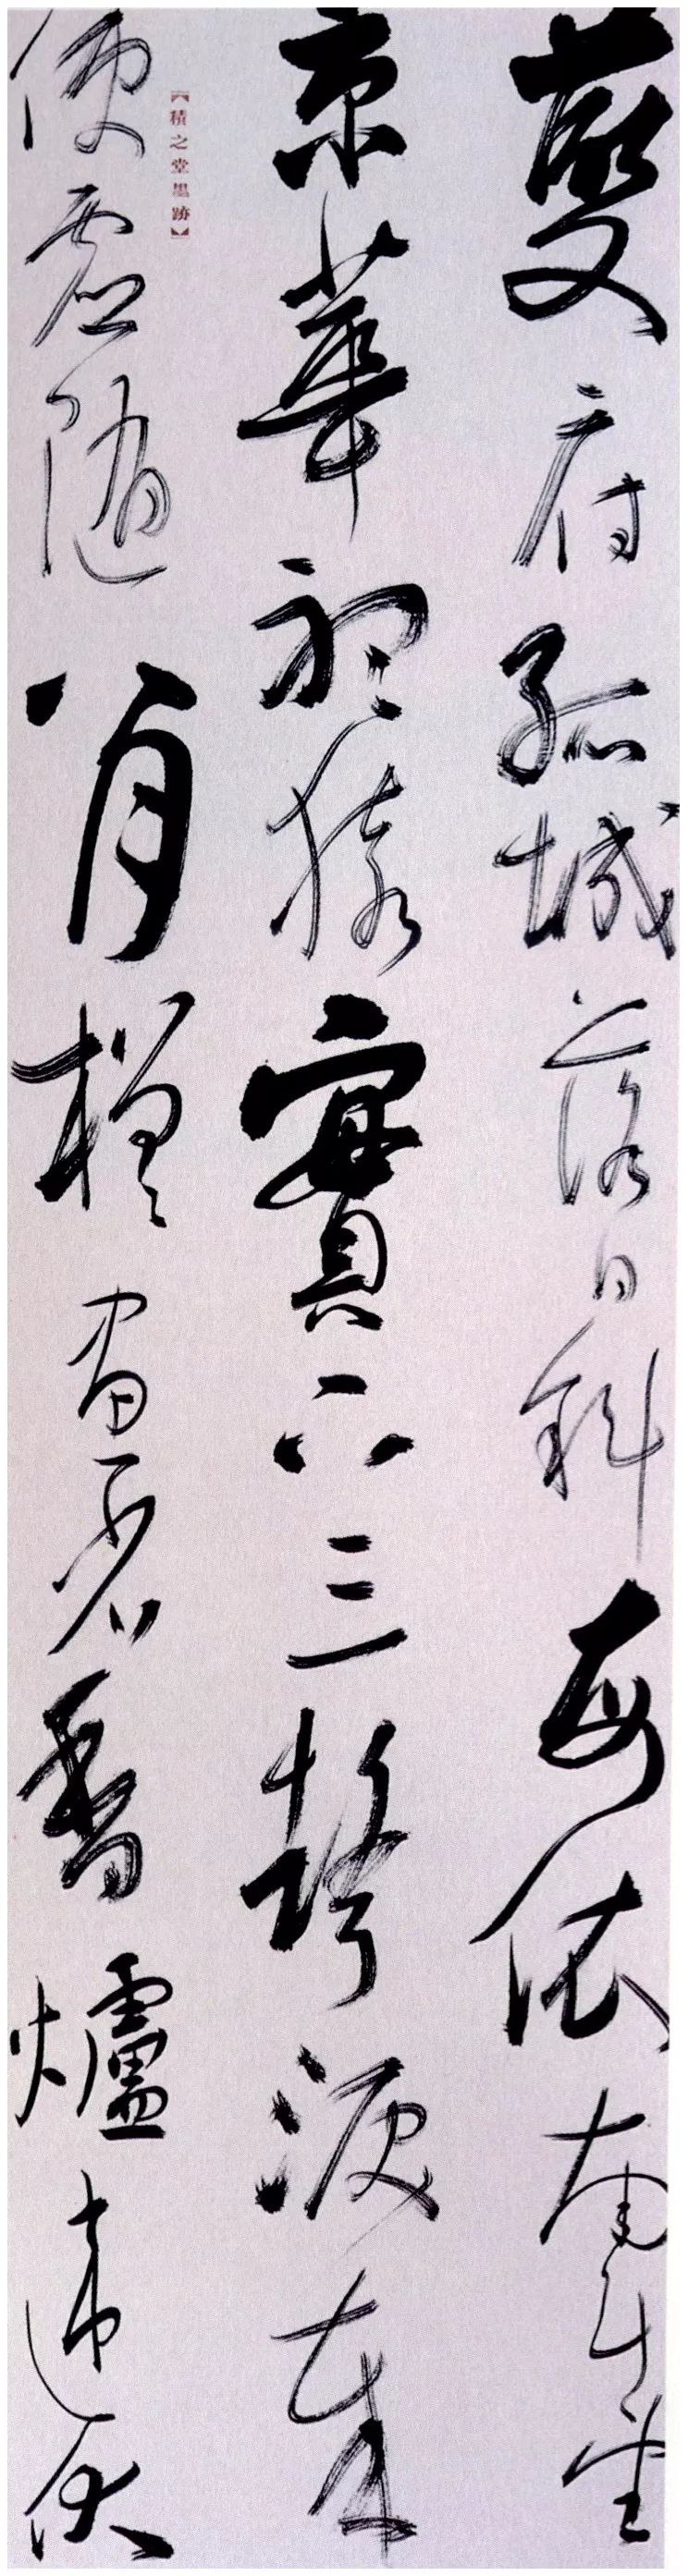 夔府孤城落日斜每依南斗望
京華聽猿實下三聲淚奉
使虛隨八月槎畫省香爐違伏
【積之堂墨跡】